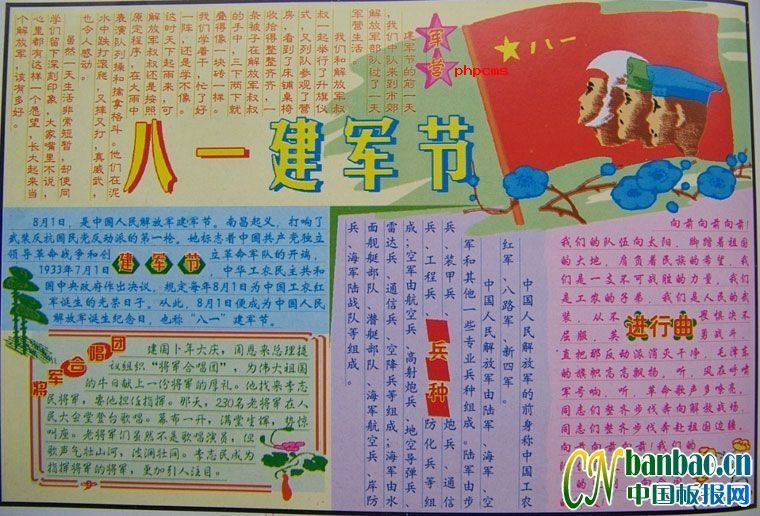 军营
建军节的前一天
我们中队来到市郊
解放军部队过了一天
军营生活。
我们和解放军叔
叔一起举行了升旗仪
式,又列队参观了营
房,看到了床铺桌椅
收拾得整整齐齐,一
条被子在解放军叔叔
的手中,三下两下就
叠得像一块砖一样。
我们学着干,忙了好
一阵,还是学不像。
这时天下起雨来,可
解放军叔叔还是按照
原定程序,在大雨中
表演队列操和擒拿格斗。他们在泥
水中跌打滚爬,又摔又打,真威武,
也令人感动。
虽然一天生活非常短暂,却使同
学们留下深刻印象,大家嘴里不说,
心里都有这样一个愿望,长大起来当
个解放军,该有多好。
phpcms
八一
八一建军节
8月1日,是中国人民解放军建军节。南昌起义,打响了
武装反抗国民党反动派的第一枪。她标志着中国共产党独立
领导革命战争和创立革命军队的开端。
建军节
1933年7月1日,中华工农民主共和
国中央政府作出决议,规定每年8月1日为中国工农红
军诞生的光荣日子。从此,8月1日便成为中国人民
解放军诞生纪念日,也称“八一”建军节。
将军合唱团
建国十年大庆,周恩来总理提
议组织“将军合唱团”,为伟大祖国
的生日献上一份将军的厚礼。他找来李志
民将军,要他担任指挥。那天,230名老将军在人
民大会堂登台歌唱。幕布一升,满堂生辉,势惊
叫座。老将军们虽然不是歌唱演员,但
歌声气壮山河,波澜壮阔。李志民成为
指挥将军的将军,更加引人注目。
兵种
中国人民解放军的前身称中国工农
红军、八路军、新四军。
中国人民解放军由陆军、海军、空
军和其他一些专业兵种组成。陆军由步
兵、装甲兵、炮兵、通信
兵、工程兵、防化兵等组
成;空军由航空兵、高射炮兵、地空导弹兵、
雷达兵、通信兵、空降兵等组成;海军由水
面舰艇部队、潜艇部队、海军航空兵、岸防
兵、海军陆战队等组成。
进行曲
向前向前向前!
我们的队伍向太阳,脚踏着祖国
的大地,肩负着民族的希望,我
们是一支不可战胜的力量。我们
是工农的子弟,我们是人民的武
装,从不畏惧决不
屈服,英勇战斗,
直把那反动派消灭干净,毛泽东
的旗帜高高飘扬。听,风在呼啸
军号响,听,革命歌声多嘹亮。
同志们整齐步伐奔向解放战场,
同志们整齐步伐奔赴祖国边疆,
向前向前向前!我们的
CN banbao.cn
中国板报网